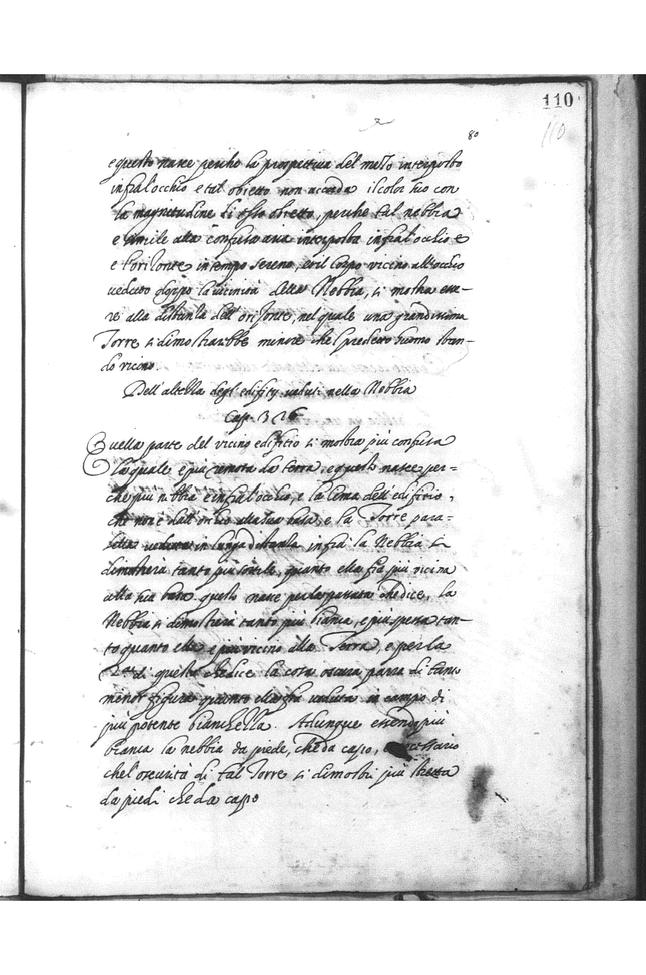 110
110
80
e questo nasce perche la prospettiva del mezo interposto
infra l'occhio e tal obietto non accorda il color suo con
la magnitudine di esso obietto, perche tal nebbia
e simile alla confusa aria interposta infra l'occhio e
e l'orizonte in tempo sereno, et il corpo vicino all'occhio
veduto doppo la vicinità della Nebbia, si mostra esse-
re alla distanza dell'orizonte, nel quale una grandissima
Torre si dimostrarebbe minore che'l predetto huomo stan-
do vicino.
Dell'altezza degl'edifitij veduti nella Nebbia
Cap. 326
Quella parte del vicino edifitio si mostra più confusa
la quale è più remota da terra, e questo nasce per-
che più nebbia è infra l'occhio, e la cima dell'edificio,
che non è dall'occhio alla sua basa, e la Torre para-
lella veduta in lunga distanza infra la Nebbia si
dimostrerà tanto più sottile, quanto ella fia più vicina
alla sua basa. questo nasce per la passata che dice, la
Nebbia si dimostrerà tanto più bianca, e più spessa tan-
to quanto ella è più vicino alla Terra, e per la
2.da di questo che dice la cosa oscura parrà di tanto
minor figura quanto ella fia veduta in campo di
più potente bianchezza. Adunque essendo più
bianca la nebbia da piede, che da capo, necessario
che l'oscurità di tal Torre si dimostri più stretta
da piedi che da capo